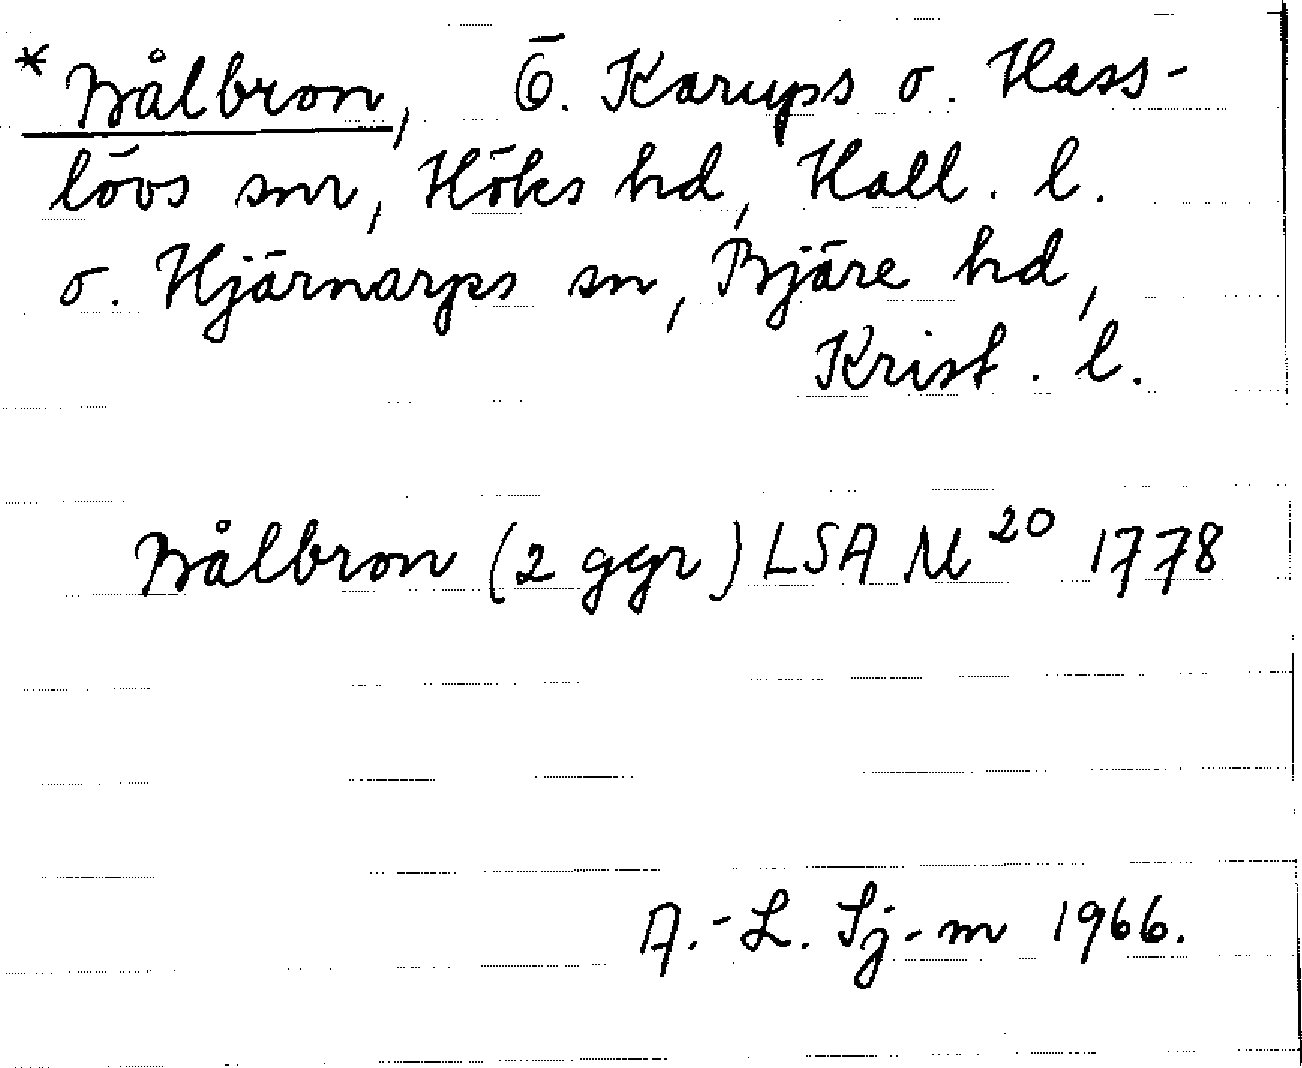 * Bålbron, Ö. Karups o. Hass-
lövs snr, Höks hd, Hall. l.
o. Hjärnarps sn, Bjäre hd,
Krist. l.
Bålbron (2 ggr) LSA M 20 1778
A.-L. Sj-m 1966.